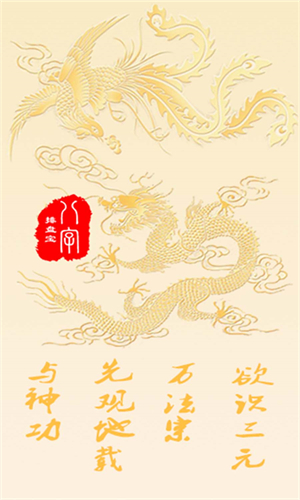 八字
排盘宝
欲识三元
万法宗
先观地载
与神功